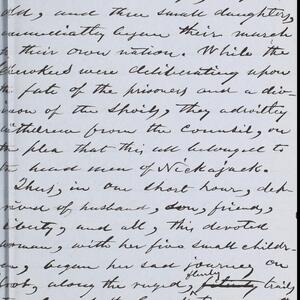 old, and three small daughters,
immediately began their march
to their own nation. While the
Cherokees were deliberating upon
the fate of the prisoners and a div-
ision of the Spoils, they adroitly
withdrew from the Counsil, on
the plea that this all belonged to
the head men of Nickajack.
Thus, in one short hour, dep-
rived of husband, son, friends,
liberty, and all, this devoted
woman, with her five small childr-
en, began her sad journey on
foot, along the ruged, plenty trails